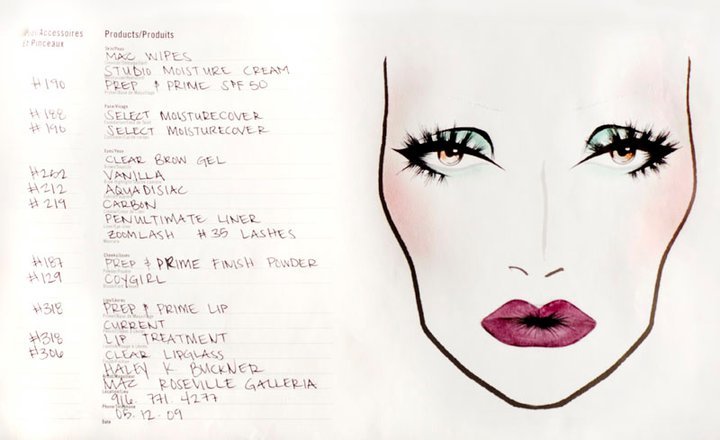 Accessoires Products/Produits
et Pinceaux
MAC WIPES
STUDIO MOISTURE CREAM
#190 PREP & PRIME SPF 50
#188 SELECT MOISTURECOVER
#190 SELECT MOISTURECOVER
CLEAR BROW GEL
#262 VANILLA
#212 AQUADISIAC
#219 CARBON
PENULTIMATE LINER
ZOOMLASH #35 LASHES
#187 PREP & PRIME FINISH POWDER
#129 COYGIRL
#318 PREP & PRIME LIP
CURRENT
#318 LIP TREATMENT
#306 CLEAR LIPGLASS
HALEY K. BUCKNER
MAC ROSEVILLE GALLERIA
916. 771. 4277
05. 12. 09
Date